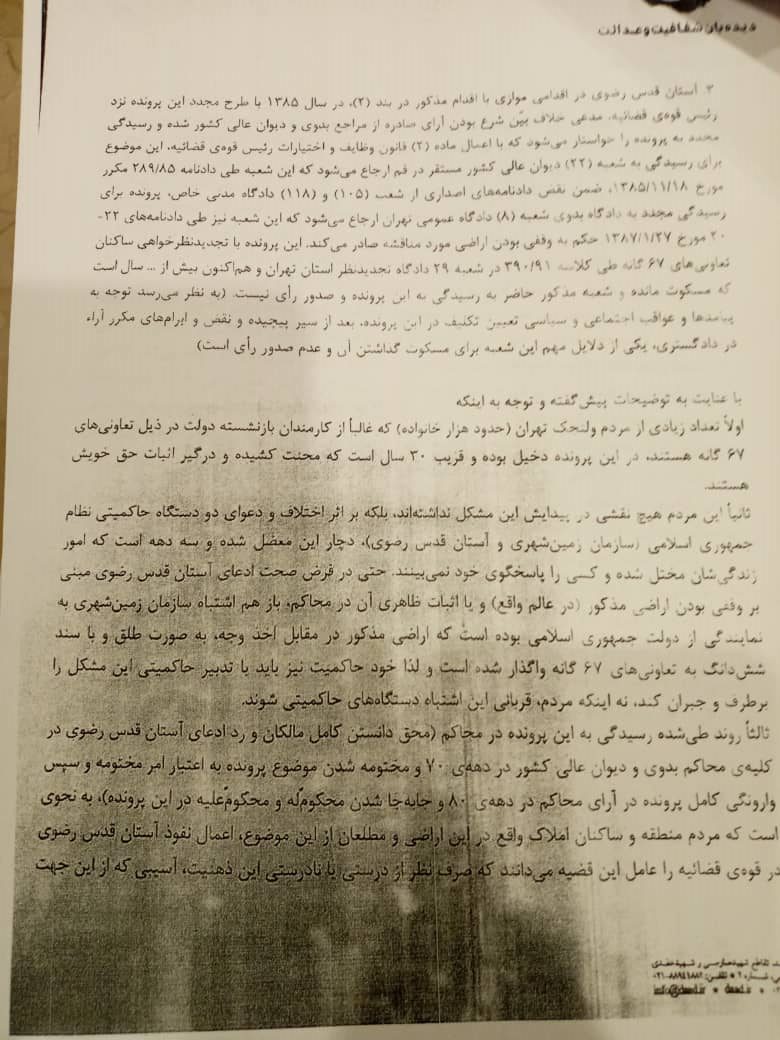 دیده‌بان شفافیت و عدالت
۳. آستان قدس رضوی در اقدامی موازی با اقدام مذکور در بند (۲)، در سال ۱۳۸۵ با طرح مجدد این پرونده نزد
رئیس قوه‌ی قضائیه، مدعی خلاف بیّن شرع بودن آرای صادره از مراجع بدوی و دیوان عالی کشور شده و رسیدگی
مجدد به پرونده را خواستار می‌شود که با اعمال ماده (۲) قانون وظایف و اختیارات رئیس قوه‌ی قضائیه، این موضوع
برای رسیدگی به شعبه (۲۲) دیوان عالی کشور مستقر در قم ارجاع می‌شود که این شعبه طی دادنامه ۲۸۹/۸۵ مکرر
مورخ ۱۳۸۵/۱۱/۱۸، ضمن نقض دادنامه‌های اصداری از شعب (۱۰۵) و (۱۱۸) دادگاه مدنی خاص، پرونده برای
رسیدگی مجدد به دادگاه بدوی شعبه (۸) دادگاه عمومی تهران ارجاع می‌شود که این شعبه نیز طی دادنامه‌های ۲۲-
۲۰ مورخ ۱۳۸۷/۱/۲۷ حکم به وقفی بودن اراضی مورد مناقشه صادر می‌کند. این پرونده با تجدیدنظرخواهی ساکنان
تعاونی‌های ۶۷ گانه طی کلاسه ۳۹۰/۹۱ در شعبه ۲۹ دادگاه تجدیدنظر استان تهران و هم‌اکنون بیش از ... سال است
که مسکوت مانده و شعبه مذکور حاضر به رسیدگی به این پرونده و صدور رأی نیست. (به نظر می‌رسد توجه به
پیامدها و عواقب اجتماعی و سیاسی تعیین تکلیف در این پرونده، بعد از سیر پیچیده و نقض و ابرام‌های مکرر آراء
در دادگستری، یکی از دلایل مهم این شعبه برای مسکوت گذاشتن آن و عدم صدور رأی است)
با عنایت به توضیحات پیش‌گفته و توجه به اینکه
اولاً تعداد زیادی از مردم ولنجک تهران (حدود هزار خانواده) که غالباً از کارمندان بازنشسته دولت در ذیل تعاونی‌های
۶۷ گانه هستند، در این پرونده دخیل بوده و قریب ۳۰ سال است که محنت کشیده و درگیر اثبات حق خویش
هستند.
ثانیاً این مردم هیچ نقشی در پیدایش این مشکل نداشته‌اند، بلکه بر اثر اختلاف و دعوای دو دستگاه حاکمیتی نظام
جمهوری اسلامی (سازمان زمین‌شهری و آستان قدس رضوی)، دچار این معضل شده و سه دهه است که امور
زندگی‌شان مختل شده و کسی را پاسخگوی خود نمی‌بینند. حتی در فرض صحت ادعای آستان قدس رضوی مبنی
بر وقفی بودن اراضی مذکور (در عالم واقع) و یا اثبات ظاهری آن در محاکم، باز هم اشتباه سازمان زمین‌شهری به
نمایندگی از دولت جمهوری اسلامی بوده است که اراضی مذکور در مقابل اخذ وجه، به صورت طلق و با سند
شش‌دانگ به تعاونی‌های ۶۷ گانه واگذار شده است و لذا خود حاکمیت نیز باید با تدبیر حاکمیتی این مشکل را
برطرف و جبران کند، نه اینکه مردم، قربانی این اشتباه دستگاه‌های حاکمیتی شوند.
ثالثاً روند طی‌شده رسیدگی به این پرونده در محاکم (محق دانستن کامل مالکان و رد ادعای آستان قدس رضوی در
کلیه‌ی محاکم بدوی و دیوان عالی کشور در دهه‌ی ۷۰ و مختومه شدن موضوع پرونده به اعتبار امر مختومه و سپس
وارونگی کامل پرونده در آرای محاکم در دهه‌ی ۸۰ و جابه‌جا شدن محکومٌ‌له و محکومٌ‌علیه در این پرونده)، به نحوی
است که مردم منطقه و ساکنان املاک واقع در این اراضی و مطلعان از این موضوع، اعمال نفوذ آستان قدس رضوی
در قوه‌ی قضائیه را عامل این قضیه می‌دانند که صرف نظر از درستی یا نادرستی این ذهنیت، آسیبی که از این جهت
تقاطع شهید مدرسی و شهید
شماره ۱ * تلفن: ۸۸۹۴۱۸۸۲-۰۲۱
info@dmed.ir * dmed.ir *